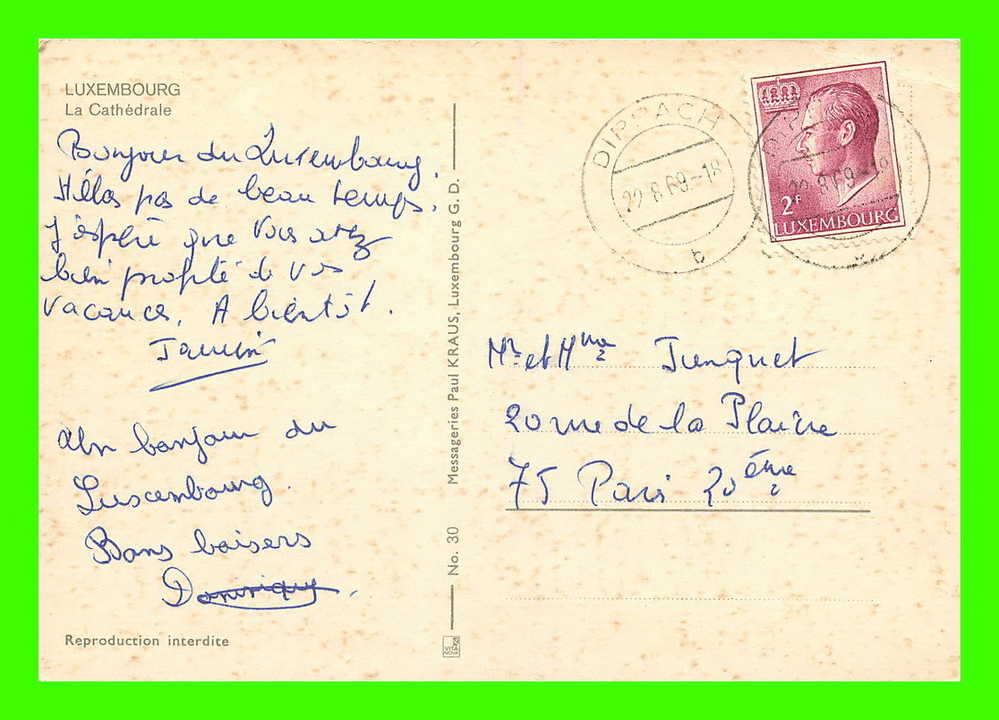 LUXEMBOURG
La Cathédrale
Bonjour du Luxembourg.
Hélas pas de beau temps.
J'espère que vous avez
bien profité de vos
vacances. A bientôt.
Un bonjour du
Luxembourg.
Bons baisers
Dominique.
Reproduction interdite
No. 30 Messageries Paul KRAUS, Luxembourg G. D.
DIPPACH
22.8.69-18
b
2F
LUXEMBOURG
Mr et Mme Junquet
20 rue de la Plaine
75 Paris 20ème